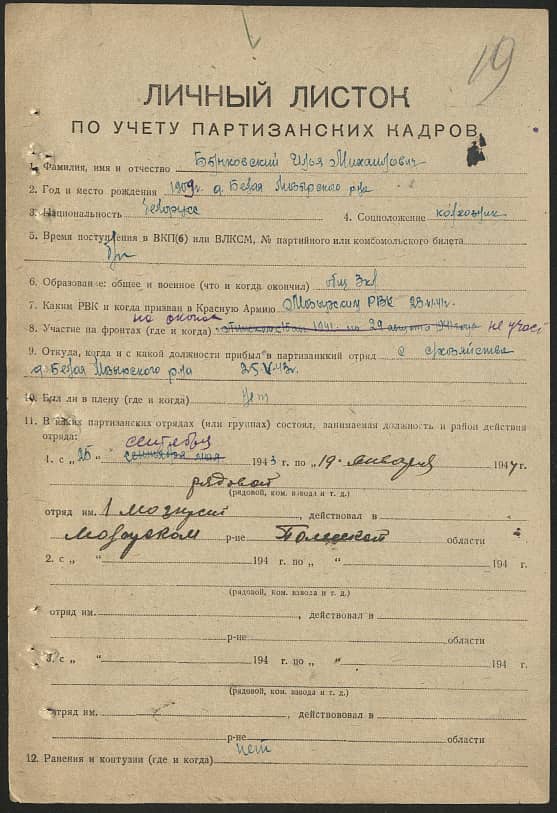 19
ЛИЧНЫЙ ЛИСТОК
ПО УЧЕТУ ПАРТИЗАНСКИХ КАДРОВ
1. Фамилия, имя и отчество Бунковский Илья Михайлович
2. Год и место рождения 1909 г. д. Белая Мозырского р-на
3. Национальность белорусс 4. Соцположение колхозник
5. Время поступления в ВКП(б) или ВЛКСМ, № партийного или комсомольского билета
б/п
6. Образование: общее и военное (что и когда окончил) общ 3 кл
7. Каким РВК и когда призван в Красную Армию Мозырским РВК 23.VI.41г.
на окопах
8. Участие на фронтах (где и когда) 1941 по 29 августа не учас
9. Откуда, когда и с какой должности прибыл в партизанский отряд с с/хозяйства
д. Белая Мозырского р-на 25.V.43г.
10. Был ли в плену (где и когда) нет
11. В каких партизанских отрядах (или группах) состоял, занимаемая должность и район действия
отряда: сентября
1. с „ 25 " мая 1943 г. по „ 19 " января 1944 г.
рядовой
(рядовой, ком. взвода и т. д.)
отряд им. 1 мозырский, действовал в
Мозырском р-не Полесской области
2. с „ " 194 г. по „ " 194 г.
(рядовой, ком. взвода и т. д.)
отряд им. , действовал в
р-не области
3. с „ " 194 г. по „ " 194 г.
(рядовой, ком. взвода и т. д.)
отряд им. , действовал в
р-не области
12. Ранения и контузии (где и когда) нет